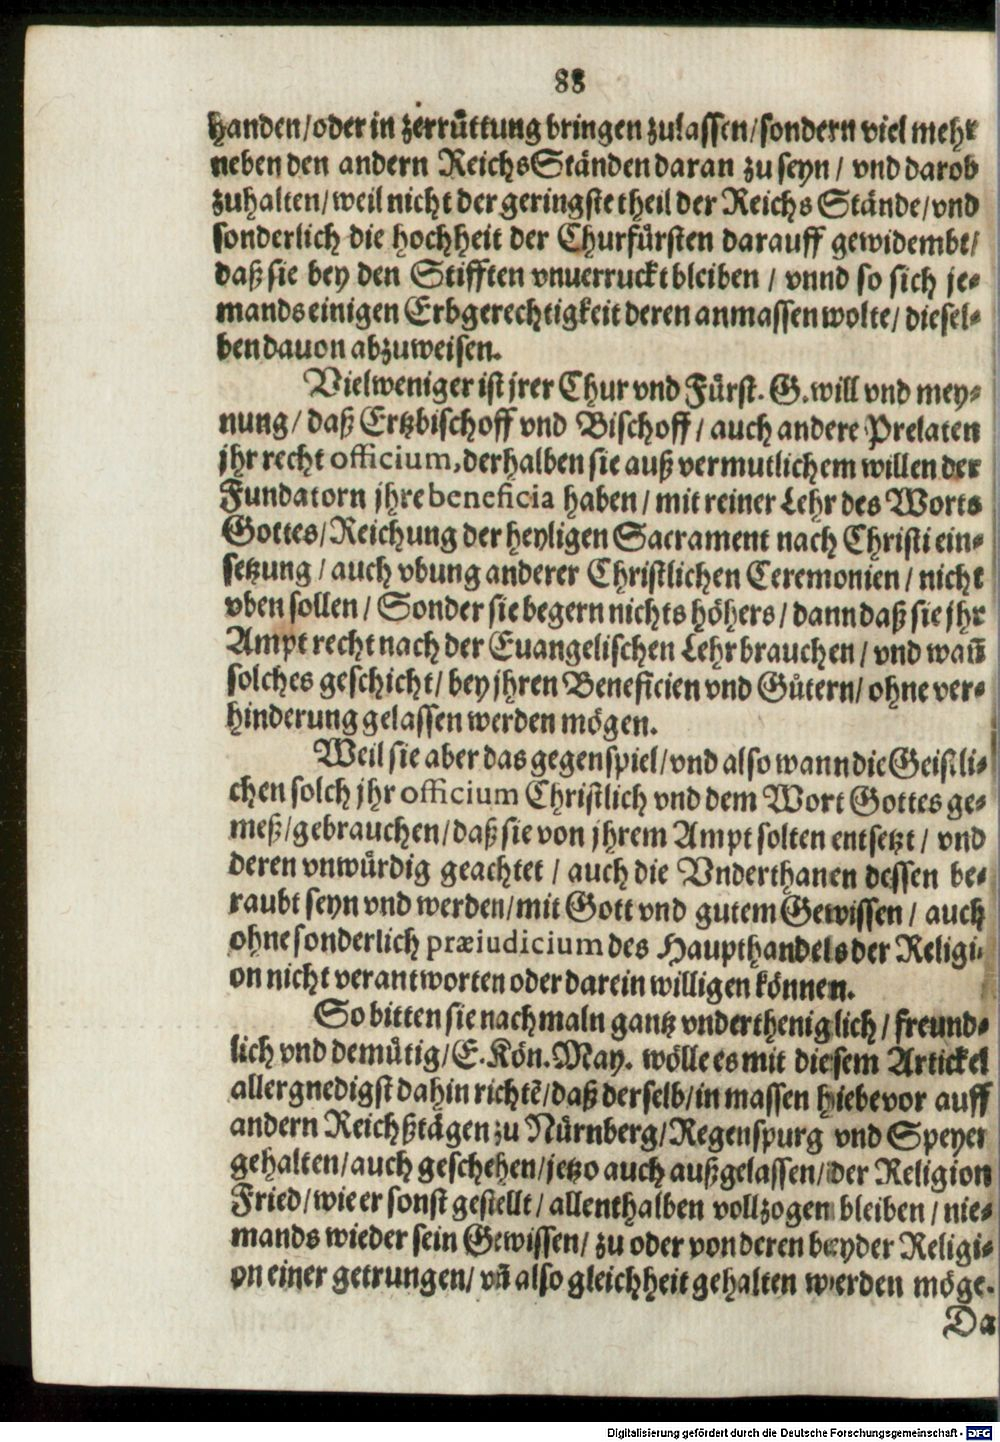 88
handen/oder in zerrüttung bringen zulassen/sondern viel mehr
neben den andern ReichsStänden daran zu seyn/ vnd darob
zuhalten/weil nicht der geringste theil der Reichs Stände/vnd
sonderlich die hochheit der Churfürsten darauff gewidembt/
daß sie bey den Stifften vnuerruckt bleiben / vnnd so sich je-
mands einigen Erbgerechtigkeit deren anmassen wolte/ diesel-
ben dauon abzuweisen.
Vielweniger ist jrer Chur vnd Fürst. G. will vnd mey-
nung/ daß Ertzbischoff vnd Bischoff/ auch andere Prelaten
jhr recht officium, derhalben sie auß vermutlichem willen der
Fundatorn jhre beneficia haben / mit reiner Lehr des Worts
Gottes/ Reichung der heyligen Sacrament nach Christi ein-
setzung / auch vbung anderer Christlichen Ceremonien / nicht
vben sollen / Sonder sie begern nichts höhers / dann daß sie jhr
Ampt recht nach der Euangelischen Lehr brauchen / vnd wañ
solches geschicht/ bey jhren Beneficien vnd Gütern/ ohne ver-
hinderung gelassen werden mögen.
Weil sie aber das gegenspiel/vnd also wann die Geistli-
chen solch jhr officium Christlich vnd dem Wort Gottes ge-
meß/gebrauchen/daß sie von jhrem Ampt solten entsetzt / vnd
deren vnwürdig geachtet / auch die Vnderthanen dessen be-
raubt seyn vnd werden/mit Gott vnd gutem Gewissen / auch
ohne sonderlich præiudicium des Haupthandels der Religi-
on nicht verantworten oder darein willigen können.
So bitten sie nachmaln gantz vndertheniglich / freund-
lich vnd demütig/E. Kön. May. wölle es mit diesem Artickel
allergnedigst dahin richtẽ/daß derselb/in massen hiebevor auff
andern Reichßtägen zu Nürnberg/Regenspurg vnd Speyer
gehalten/auch geschehen/jetzo auch außgelassen/der Religion
Fried/wie er sonst gestellt/ allenthalben vollzogen bleiben / nie-
mands wieder sein Gewissen/ zu oder von deren beyder Religi-
on einer getrungen/ vñ also gleichheit gehalten werden möge.
Da
Digitalisierung gefördert durch die Deutsche Forschungsgemeinschaft - DFG